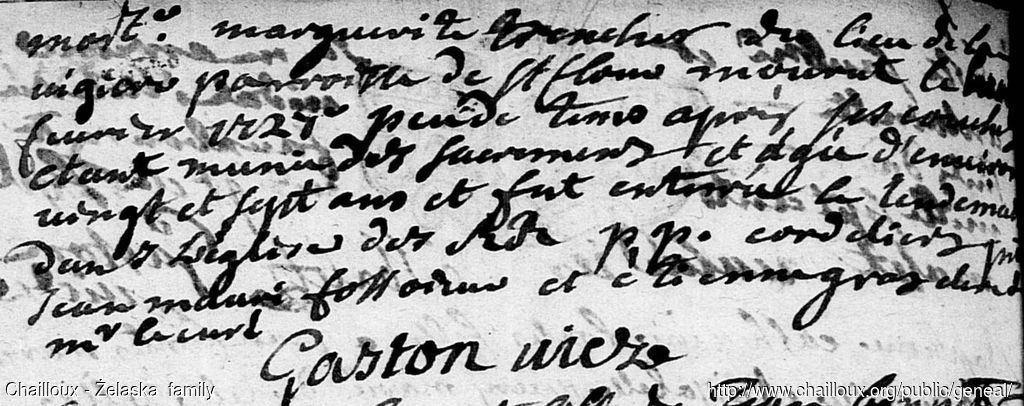 mort.e marguerite trencher du lieu de la
vigiere parroisse de st flour mourut le
fevrier 1727e peu de tems apres ses couches
etant munie des sacremens et agée d'environ
vingt et sept ans et fut enterrée le lendemain
dans l'église des Rds p.p. cordeliers
jean fossoieur et étienne gras clerc d
mr le curé
Gaston vicze
Chailloux - Żelaska family
http://www.chailloux.org/public/geneal/